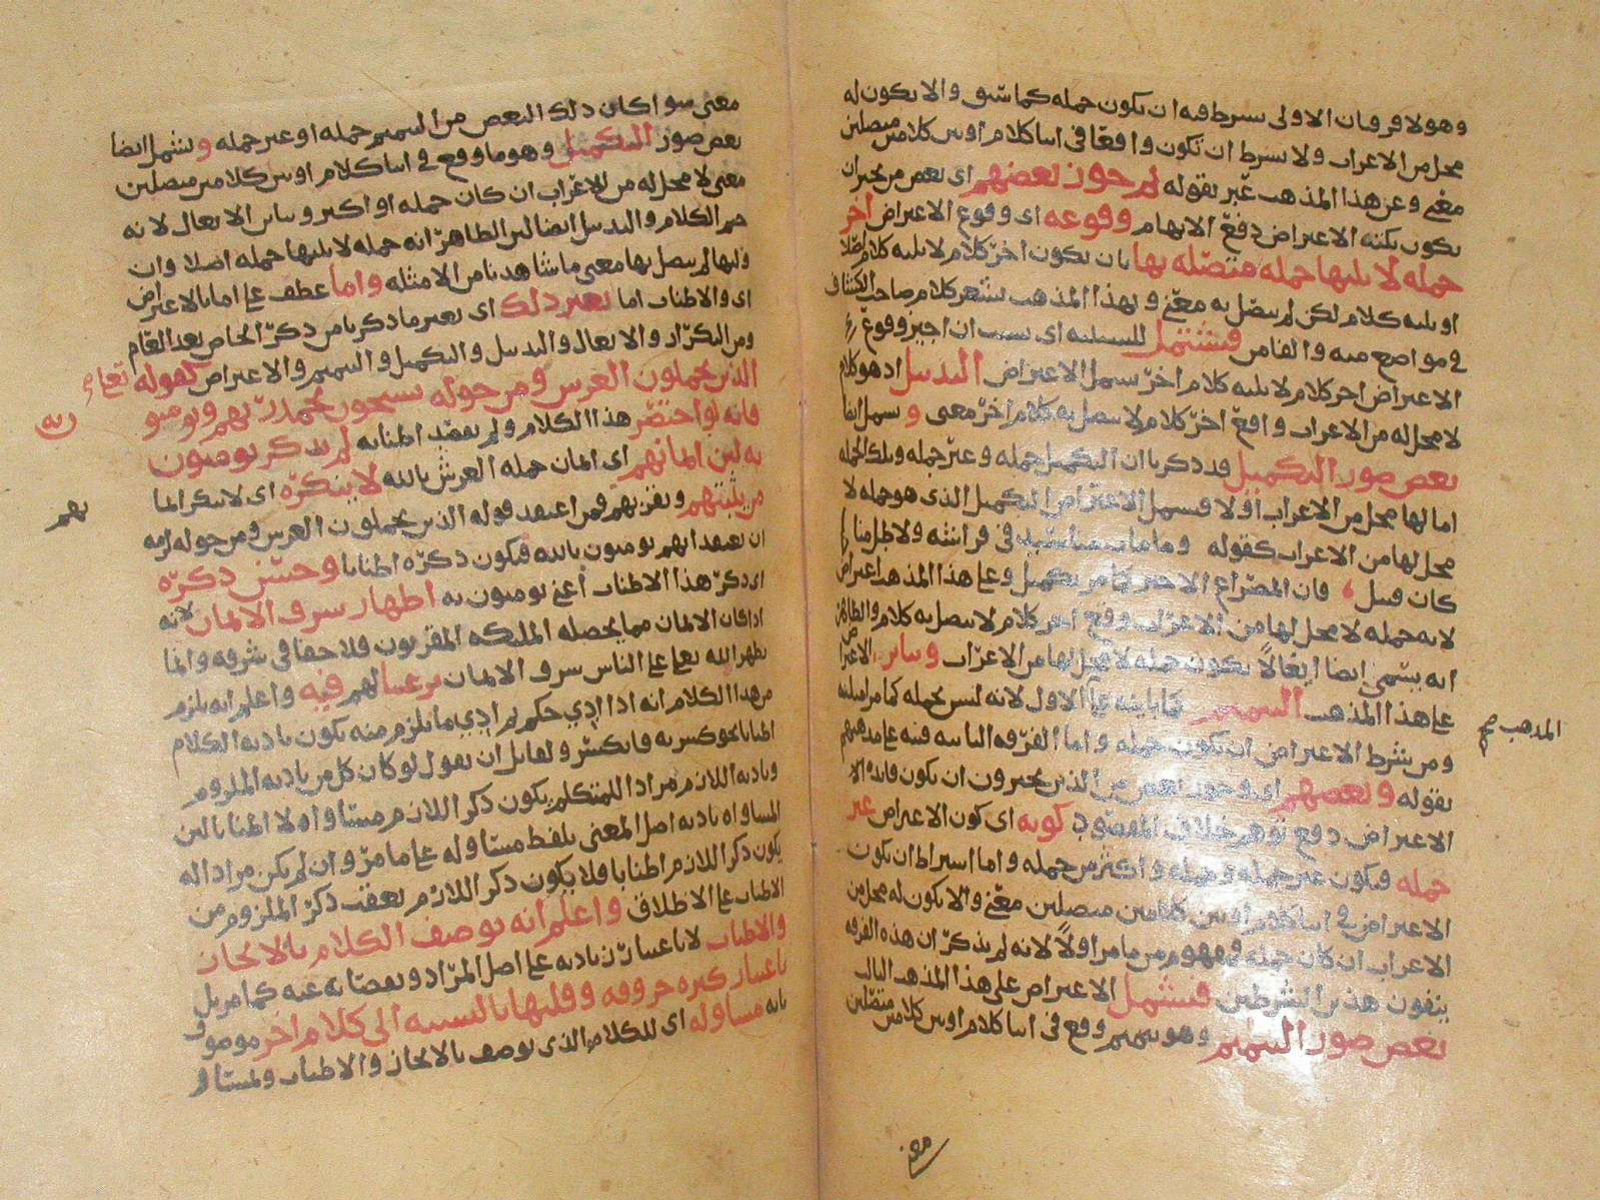 وهولا فرقان الاولى يشترط فيه ان يكون جمله كما سبق والا يكون له
محل من الاعراب ولا يشترط ان تكون واقعا في اثنا كلام او بين كلامين متصلين
معنى وعن هذا المذهب عبر بقوله ثم جوز بعضهم اى بعض من يجيز ان
يكون نكته الاعتراض دفع الايهام وقوعه اى وقوع الاعتراض اخر
جمله لا يليها جمله متصله بها بان يكون اخر كلام لا يليه كلام اصلا
او يليه كلام لكن لم يتصل به معنى وبهذا المذهب يشعر كلام صاحب الكشاف
في مواضع منه والفا من فيشتمل للسببيه اى بسبب ان اجيز وقوع
الاعتراض اخر كلام لا يليه كلام اخر يشمل الاعتراض التذييل اذ هو كلام
لا محل له من الاعراب واقع اخر كلام لا يتصل به كلام اخر معنى و يشمل ايضا
بعض صور التكميل قد ذكرنا ان التكميل جمله وغير جمله وتلك الجمله
اما لها محل من الاعراب او لا فيشمل الاعتراض التكميل الذى هو جمله لا
محل لها من الاعراب كقوله وما مات منا سيد في فراشه ولا طل منا
كان قتيل فان المصراع الاخير تكميل وعلى هذا المذهب اعتراض
لانه جمله لا محل لها من الاعراب وقع اخر كلام لا يتصل به كلام والظاهر
انه يسمى ايضا ايغالا يكون جمله لا محل لها من الاعراب ويباين الاعتراض
على هذا المذهب التتميم كما باينه على الاول لانه ليس بجمله كما مر امثلته
المذهب صح
ومن شرط الاعتراض ان يكون جمله واما الفرقه الثانيه فنبه على مذهبهم
بقوله وبعضهم اى وجوز بعض من الذين يجيزون ان يكون فائده الا
الاعتراض دفع توهم خلاف المقصود كونه اى كون الاعتراض غير
جمله فيكون غير جمله وجمله واكثر من جمله واما اشتراط ان يكون
الاعتراض في اثنا كلام او بين كلامين متصلين معنى والا يكون له محل من
الاعراب ان كان جمله فمفهوم من ما مر اولا لانه لم يذكر ان هذه الفرقه
ينفون هذين الشرطين فيشمل الاعتراض على هذا المذهب الثالث
بعض صور التتميم وهو تتميم وقع فى اثنا كلام او بين كلامين متصلين
معنى
معنى سوا كان ذلك البعض من التتميم جمله او غير جمله و يشمل ايضا
بعض صور التكميل وهو ما وقع في اثنا كلام او بين كلامين متصلين
معنى لا محل له من الاعراب ان كان جمله او اكثر ويباين الايغال لانه
ختم الكلام والتذييل ايضا لان الظاهر انه جمله لا يليها جمله اصلا وان
وليها لم يتصل بها معنى ما شاهدنا من الامثله واما عطف على اما بالاعتراض
اى والاطناب اما بغير ذلك اى بغير ما ذكر نا من ذكر الخاص بعد العام
ومن التكرار والايغال والتذييل والتكميل والتتميم والاعتراض كقوله تعالى
الذين يحملون العرش ومن حوله يسبحون بحمد ربهم ويومنو
ن به
فانه لو اختصر هذا الكلام ولم يقصد اطنابه لم يذكر يومنون
به لان ايمانهم اى ايمان حمله العرش بالله لا ينكره اى لا ينكر ايما
نهم
من يثبتهم ويقر بهم فمن اعتقد قوله الذين يحملون العرش ومن حوله لزمه
ان يعتقد انهم يومنون بالله فيكون ذكره اطنابا وحسن ذكره
اى ذكر هذا الاطناب اعنى يومنون به اظهار شرف الايمان لانه
اذا كان الايمان مما يحصله الملئكه المقربون فلا خفا في شرفه وانما
يظهر الله تعالى على الناس شرف الايمان ترغيبا لهم فيه واعلم انه يلزم
من هذا الكلام انه اذا ادي حكم ثم ادي ما يلزم منه يكون تاديه الكلام
اطنابا نحو كسرته فانكسر ولقائل ان يقول لو كان كل من تاديه الملزوم
وتاديه اللازم مرادا للمتكلم يكون ذكر اللازم مساواه لا اطنابا لان
المساواه تاديه اصل المعنى بلفظ مساو له على ما مر وان لم يكن مرادا له
يكون ذكر اللازم اطنابا فلا يكون ذكر اللازم بعقب ذكر الملزوم من
الاطناب على الاطلاق واعلم انه يوصف الكلام بالايجاز
والاطناب لا باعتبار زياده على اصل المراد ونقصانه عنه كما مر بل
باعتبار كثره حروفه وقلتها بالنسبه الى كلام اخر موصوف
بانه مساو له اى للكلام الذى يوصف بالايجاز والاطناب ومساو